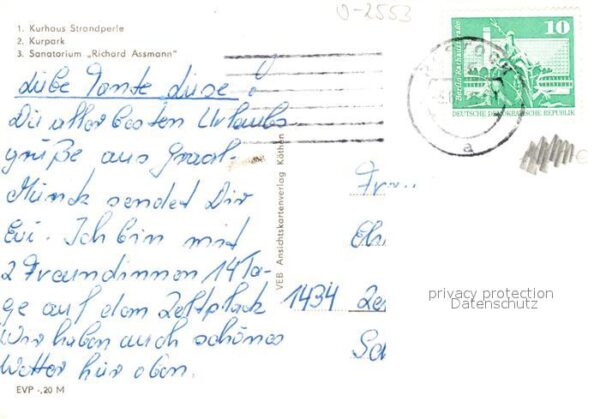 1. Kurhaus Strandperle
2. Kurpark
3. Sanatorium „Richard Assmann"
0-2553
10
Berlin-Rathausstraße
DEUTSCHE DEMOKRATISCHE REPUBLIK
ROSTOCK
a
Liebe Tante Luise.
Die allerbesten Urlaubs
grüße aus Graal-
Müritz sendet Dir
Evi. Ich bin mit
2 Freundinnen 14 Ta-
ge auf dem Zeltplatz
Wir haben auch schönes
Wetter hier oben.
EVP -,20 M
VEB Ansichtskartenverlag Köthen
1434
privacy protection
Datenschutz
€